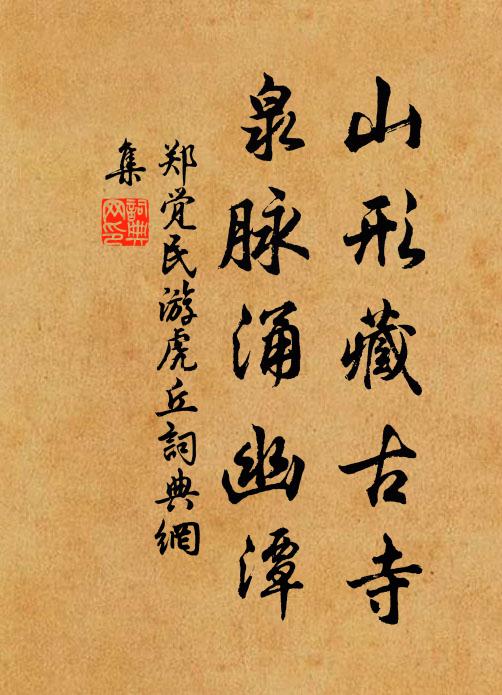 山形藏古寺
泉脉涌幽潭
郑觉民游虎丘詞典網
集
詞典网印